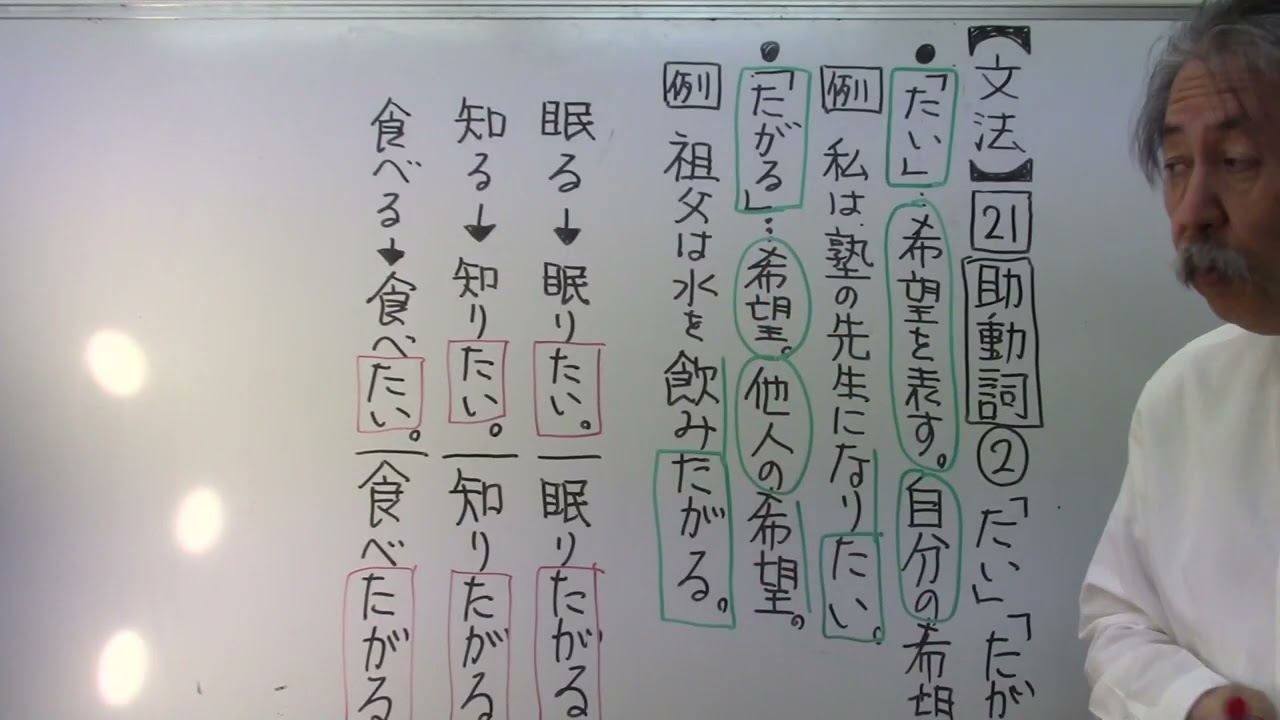 【文法】21 助動詞② 「たい」「たが
・「たい」…希望を表す。自分の希望
例 私は塾の先生になりたい。
・「たがる」…希望。他人の希望。
例 祖父は水を飲みたがる。
眠る→眠りたい。 眠りたがる
知る→知りたい。 知りたがる
食べる→食べたい。 食べたがる